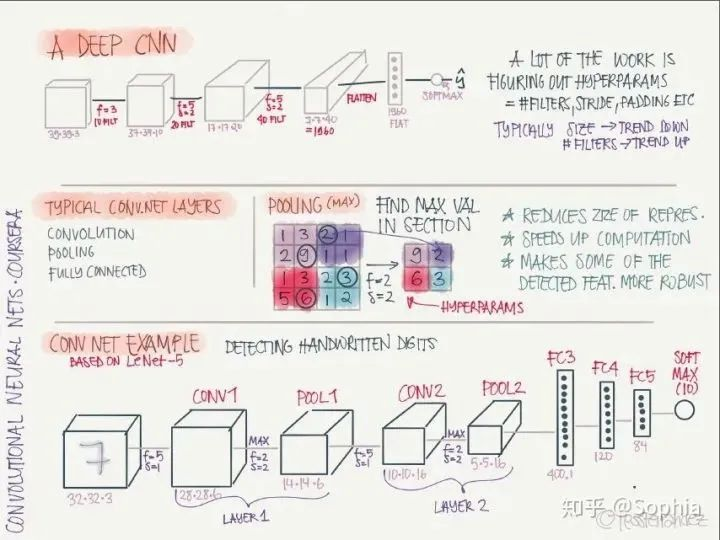 A DEEP CNN
39·39·3
f=3
10 FILT
37·37·10
f=5
s=2
20 FILT
17·17·20
f=5
s=2
40 FILT
7·7·40
=1960
FLATTEN
1960
FLAT
SOFTMAX
ŷ
A LOT OF THE WORK IS
FIGURING OUT HYPERPARAMS
= #FILTERS, STRIDE, PADDING ETC
TYPICALLY SIZE → TREND DOWN
# FILTERS → TREND UP
TYPICAL CONV.NET LAYERS
CONVOLUTION
POOLING
FULLY CONNECTED
POOLING (MAX)
1 3 2 1
2 9 1 1
1 3 2 3
5 6 1 2
FIND MAX VAL
IN SECTION
f=2
s=2
9 2
6 3
HYPERPARAMS
★ REDUCES SIZE OF REPRES.
★ SPEEDS UP COMPUTATION
★ MAKES SOME OF THE
DETECTED FEAT. MORE ROBUST
CONV NET EXAMPLE
BASED ON LeNet-5
DETECTING HANDWRITTEN DIGITS
7
32·32·3
f=5
s=1
CONV1
28·28·6
MAX
f=2
s=2
POOL1
14·14·6
LAYER 1
f=5
s=1
CONV2
10·10·16
MAX
f=2
s=2
POOL2
5·5·16
LAYER 2
FC3
400·1
FC4
120
FC5
84
SOFT
MAX
(10)
CONVOLUTIONAL NEURAL NETS·COURSERA
知乎 @Sophia